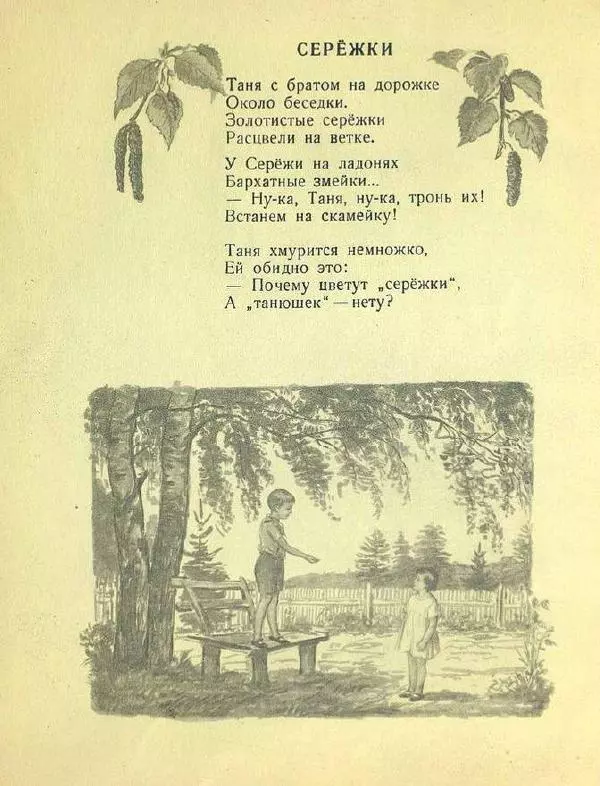 СЕРЁЖКИ
Таня с братом на дорожке
Около беседки.
Золотистые серёжки
Расцвели на ветке.
У Серёжи на ладонях
Бархатные змейки...
— Ну-ка, Таня, ну-ка, тронь их!
Встанем на скамейку!
Таня хмурится немножко,
Ей обидно это:
— Почему цветут „серёжки“,
А „танюшек“ — нету?